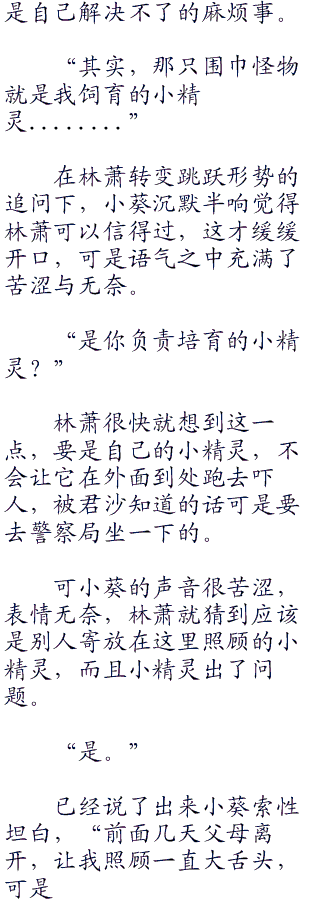 是自己解决不了的麻烦事。
“其实，那只围巾怪物
就是我饲育的小精
灵........”
在林萧转变跳跃形势的
追问下，小葵沉默半响觉得
林萧可以信得过，这才缓缓
开口，可是语气之中充满了
苦涩与无奈。
“是你负责培育的小精
灵？”
林萧很快就想到这一
点，要是自己的小精灵，不
会让它在外面到处跑去吓
人，被君沙知道的话可是要
去警察局坐一下的。
可小葵的声音很苦涩，
表情无奈，林萧就猜到应该
是别人寄放在这里照顾的小
精灵，而且小精灵出了问
题。
“是。”
已经说了出来小葵索性
坦白，“前面几天父母离
开，让我照顾一直大舌头，
可是